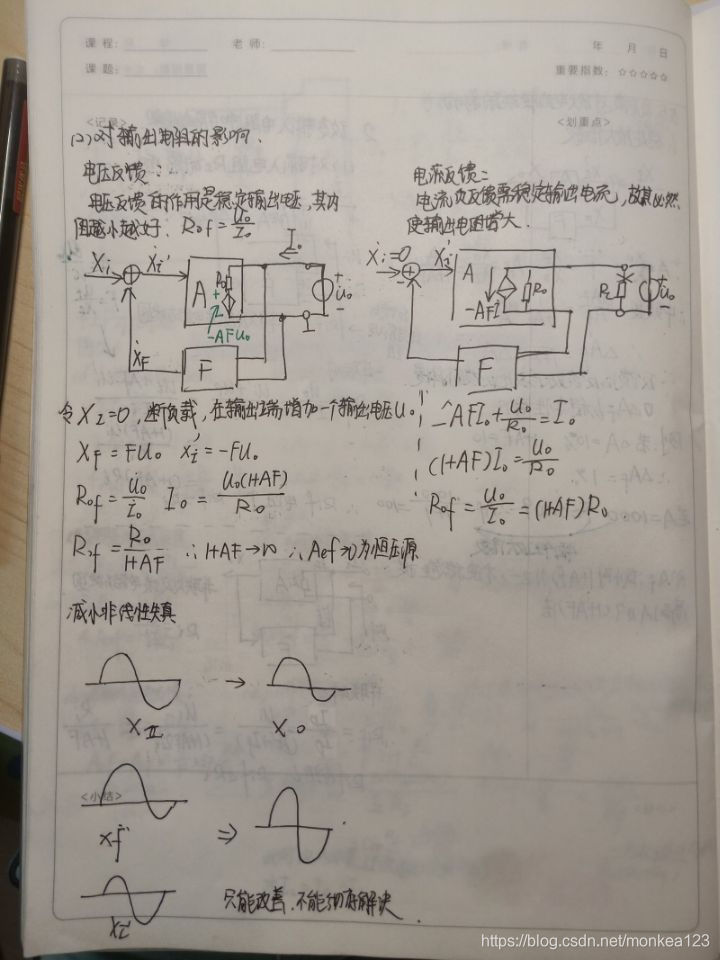 课程: 老师: 年 月 日
课题: 重要指数: ☆☆☆☆☆
<记录> <划重点>
(2)对输出电阻的影响.
电压反馈:...
电压反馈的作用是稳定输出电压,其内
阻越小越好. Rof=Uo/Io
电流反馈:
电流负反馈需稳定输出电流,故其必然
使输出电阻增大.
Xi Xi' A Ro Io + Uo -
-AFUo
XF F
Xi=0 Xi' A Ro RL + Uo -
-AFI
F
令XI=0,断负载,在输出端增加一个输出电压Uo
Xf=FUo Xi'=-FUo
Rof=Uo/Io Io=Uo(1+AF)/Ro
Rof=Ro/1+AF ∴1+AF→∞ ∴Aef→0为恒压源
-AFIo+Uo/Ro=Io
(1+AF)Io=Uo/Ro
Rof=Uo/Io=(1+AF)Ro
减小非线性失真
→
XI Xo
<小结>
Xf ⇒
Xi'
只能改善,不能解决.
https://blog.csdn.net/monkea123